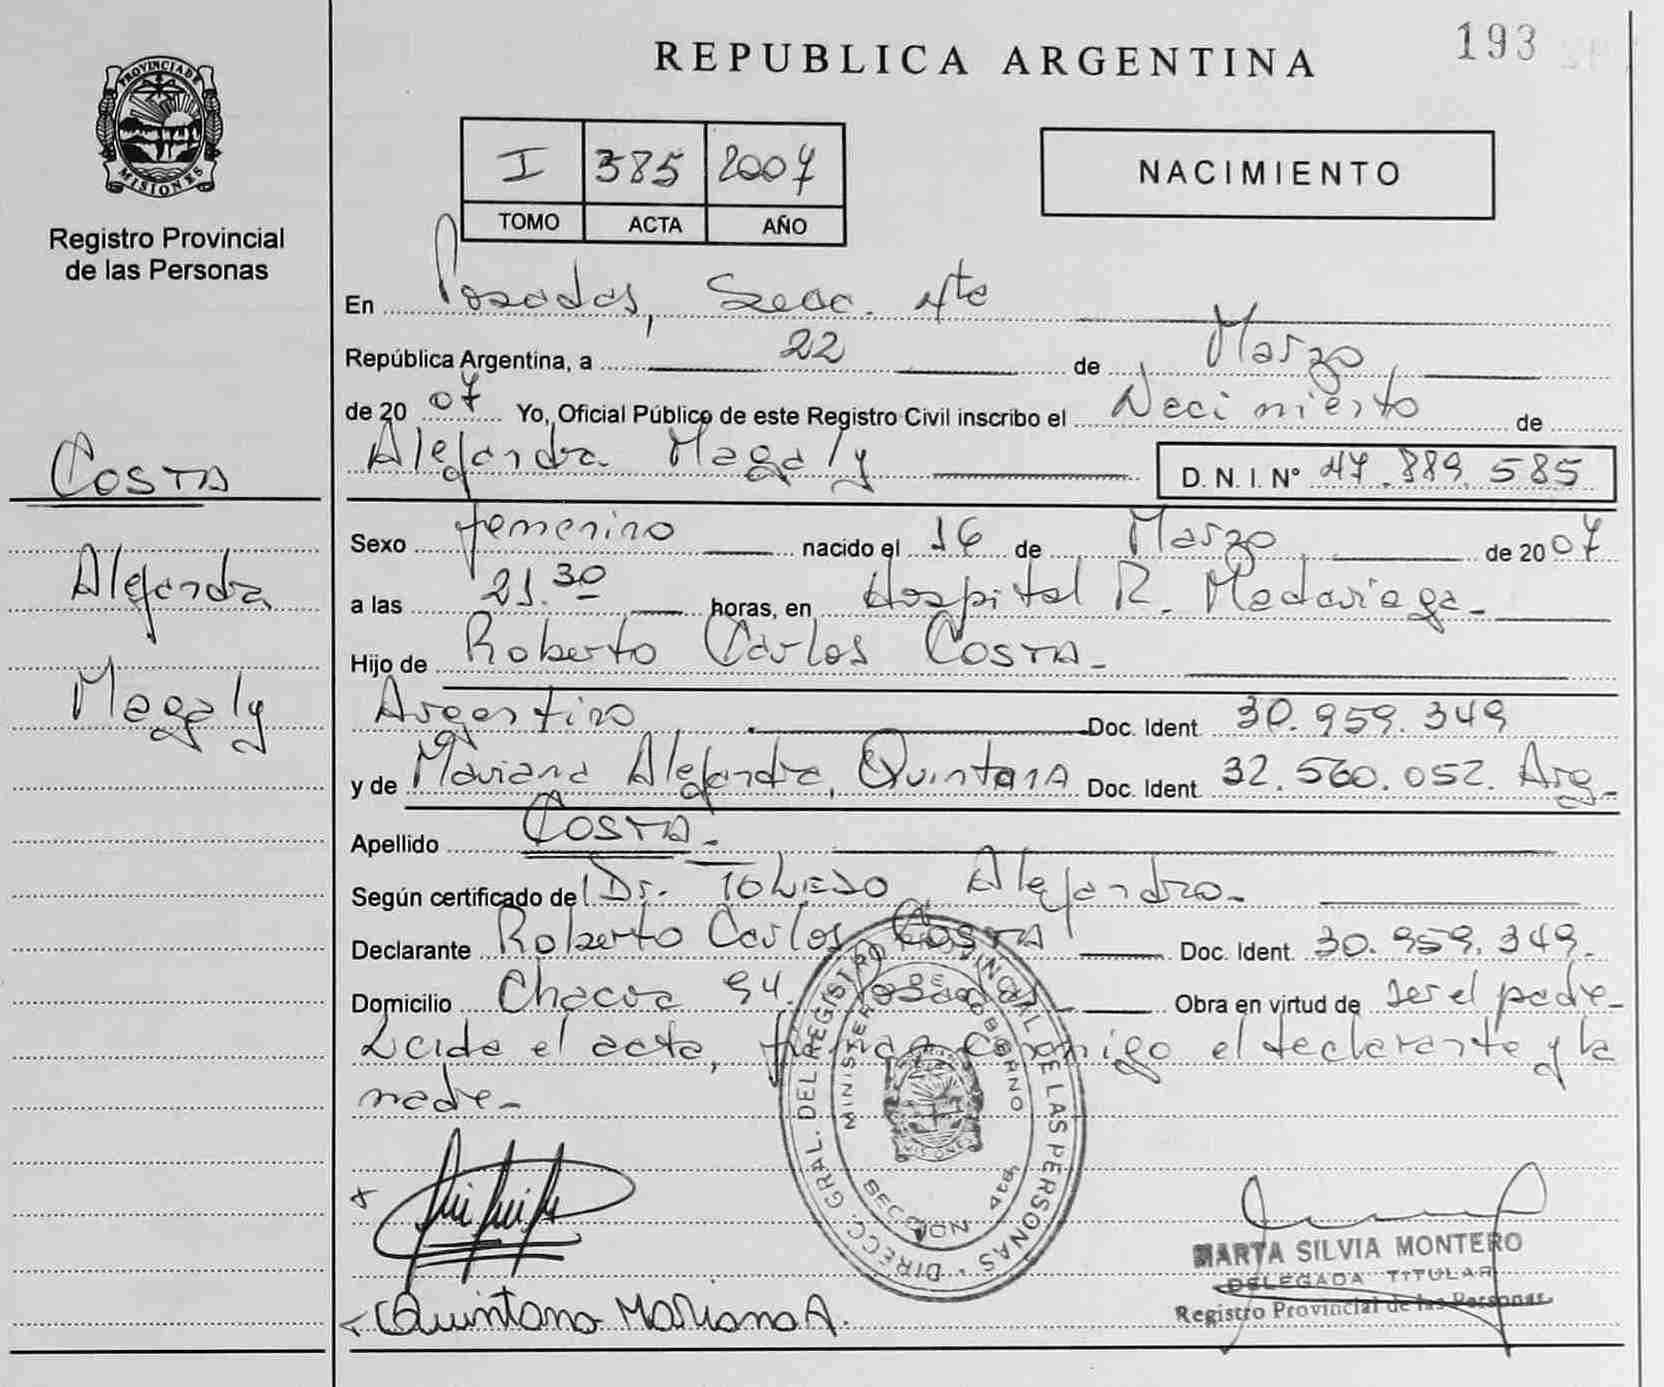 193
REPUBLICA ARGENTINA
PROVINCIA DE
MISIONES
Registro Provincial
de las Personas
I 385 2007
TOMO ACTA AÑO
NACIMIENTO
En Posadas, Secc. 4ta
República Argentina, a 22 de Marzo
de 2007 Yo, Oficial Público de este Registro Civil inscribo el Nacimiento de
Alejandra Magaly D. N. I. N° 47.889.585
Costa
Alejandra
Magaly
Sexo femenino nacido el 16 de Marzo de 2007
a las 21.30 horas, en Hospital R. Madariaga-
Hijo de Roberto Carlos Costa-
Argentino Doc. Ident 30.959.349
y de Mariana Alejandra, Quintana Doc. Ident 32.560.052. Arg-
Apellido Costa-
Según certificado de Dr. Toledo Alejandro-
Declarante Roberto Carlos Costa Doc. Ident. 30.959.349.
Domicilio Chacra 94. Posadas Obra en virtud de ser el padre-
Leida el acta, firman conmigo el declarante y la
madre-
DIRECC. GRAL. DEL REGISTRO PROVINCIAL DE LAS PERSONAS
MINISTERIO DE GOBIERNO
SECCION 4ta
MISIONES
Quintana Mariana A.
MARTA SILVIA MONTERO
DELEGADA TITULAR
Registro Provincial de las Personas